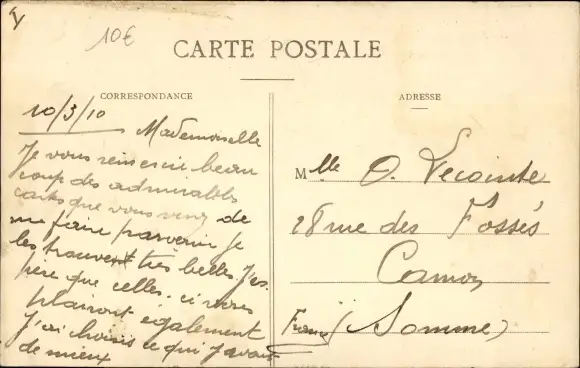 10€
CARTE POSTALE
CORRESPONDANCE
ADRESSE
10/3/10
Mademoiselle
Je vous remercie beau
coup des admirables
cartes que vous venez de
me faire parvenir je
les trouve très belles. J'es-
père que celles-ci vous
plairont également
J'ai choisis ce qui j'avait
de mieux
Mlle O. Lecointe
28 rue des Fossés
Camon
France (Somme)